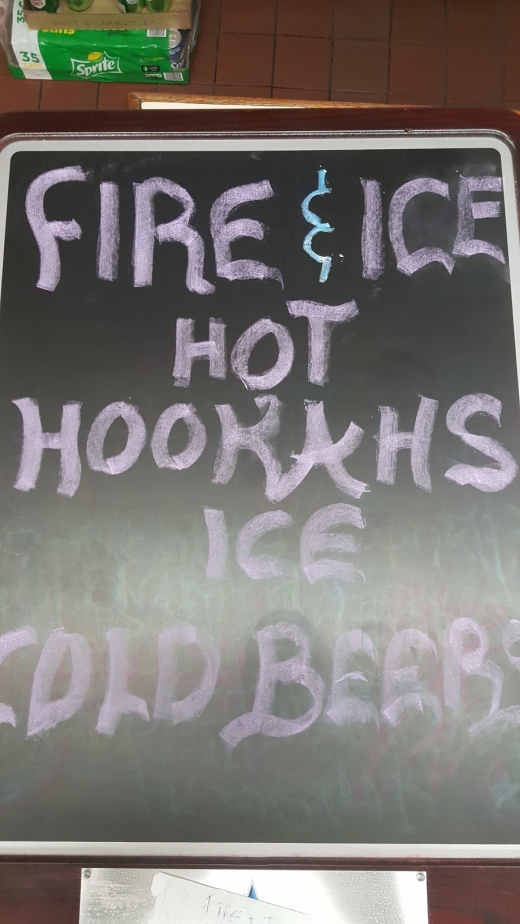 35
Sprite
FIRE & ICE
HOT
HOOKAHS
ICE
COLD BEERS